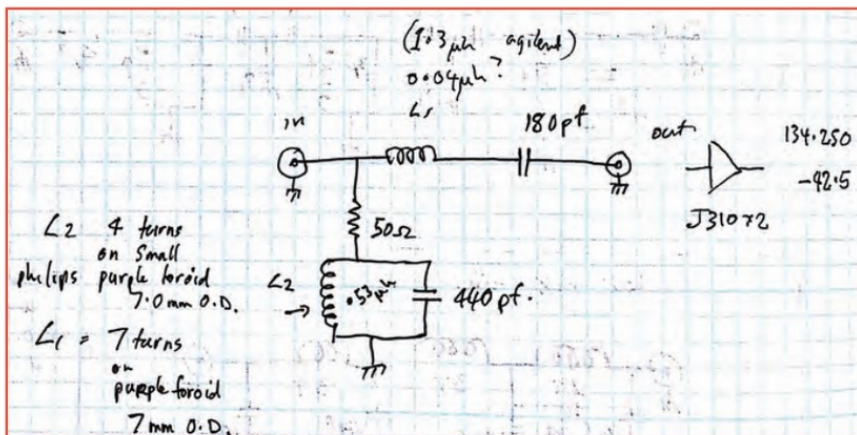 (1.3 μh agilent)
0.04μh?
L1
in
180pf
out
134.250
-42.5
J310x2
50Ω
L2 4 turns
on small
philips purple toroid
7.0mm O.D.
L2
.53μh
440pf.
L1 = 7 turns
on
purple toroid
7mm O.D.